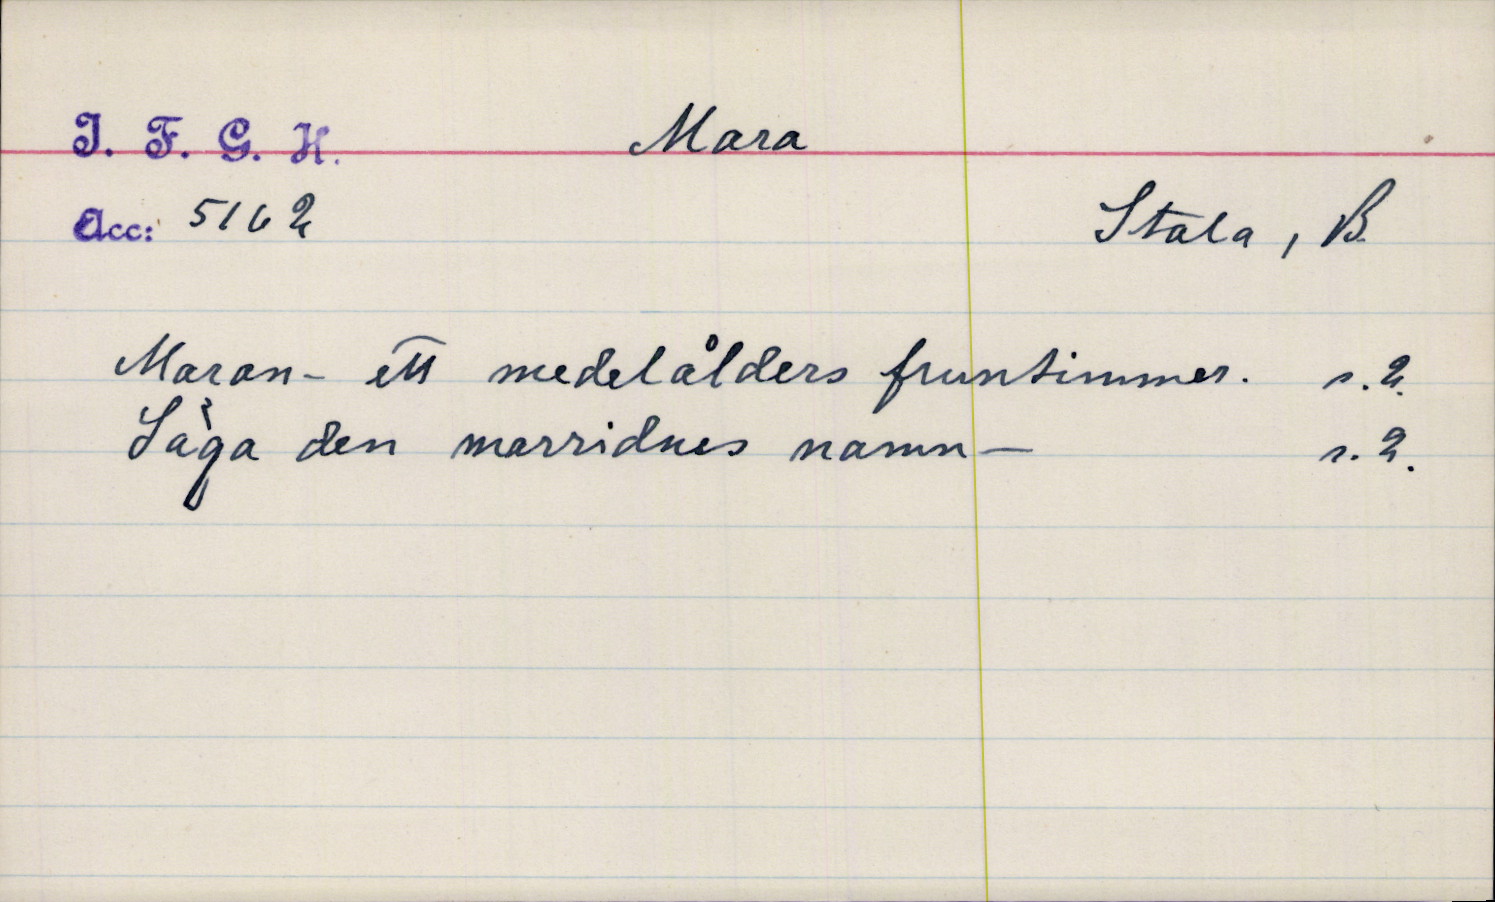 I. F. G. H. Mara
Acc: 5162 Stala, B.
Maran - ett medelålders fruntimmer. s. 2.
Säga den marridnes namn — s. 2.